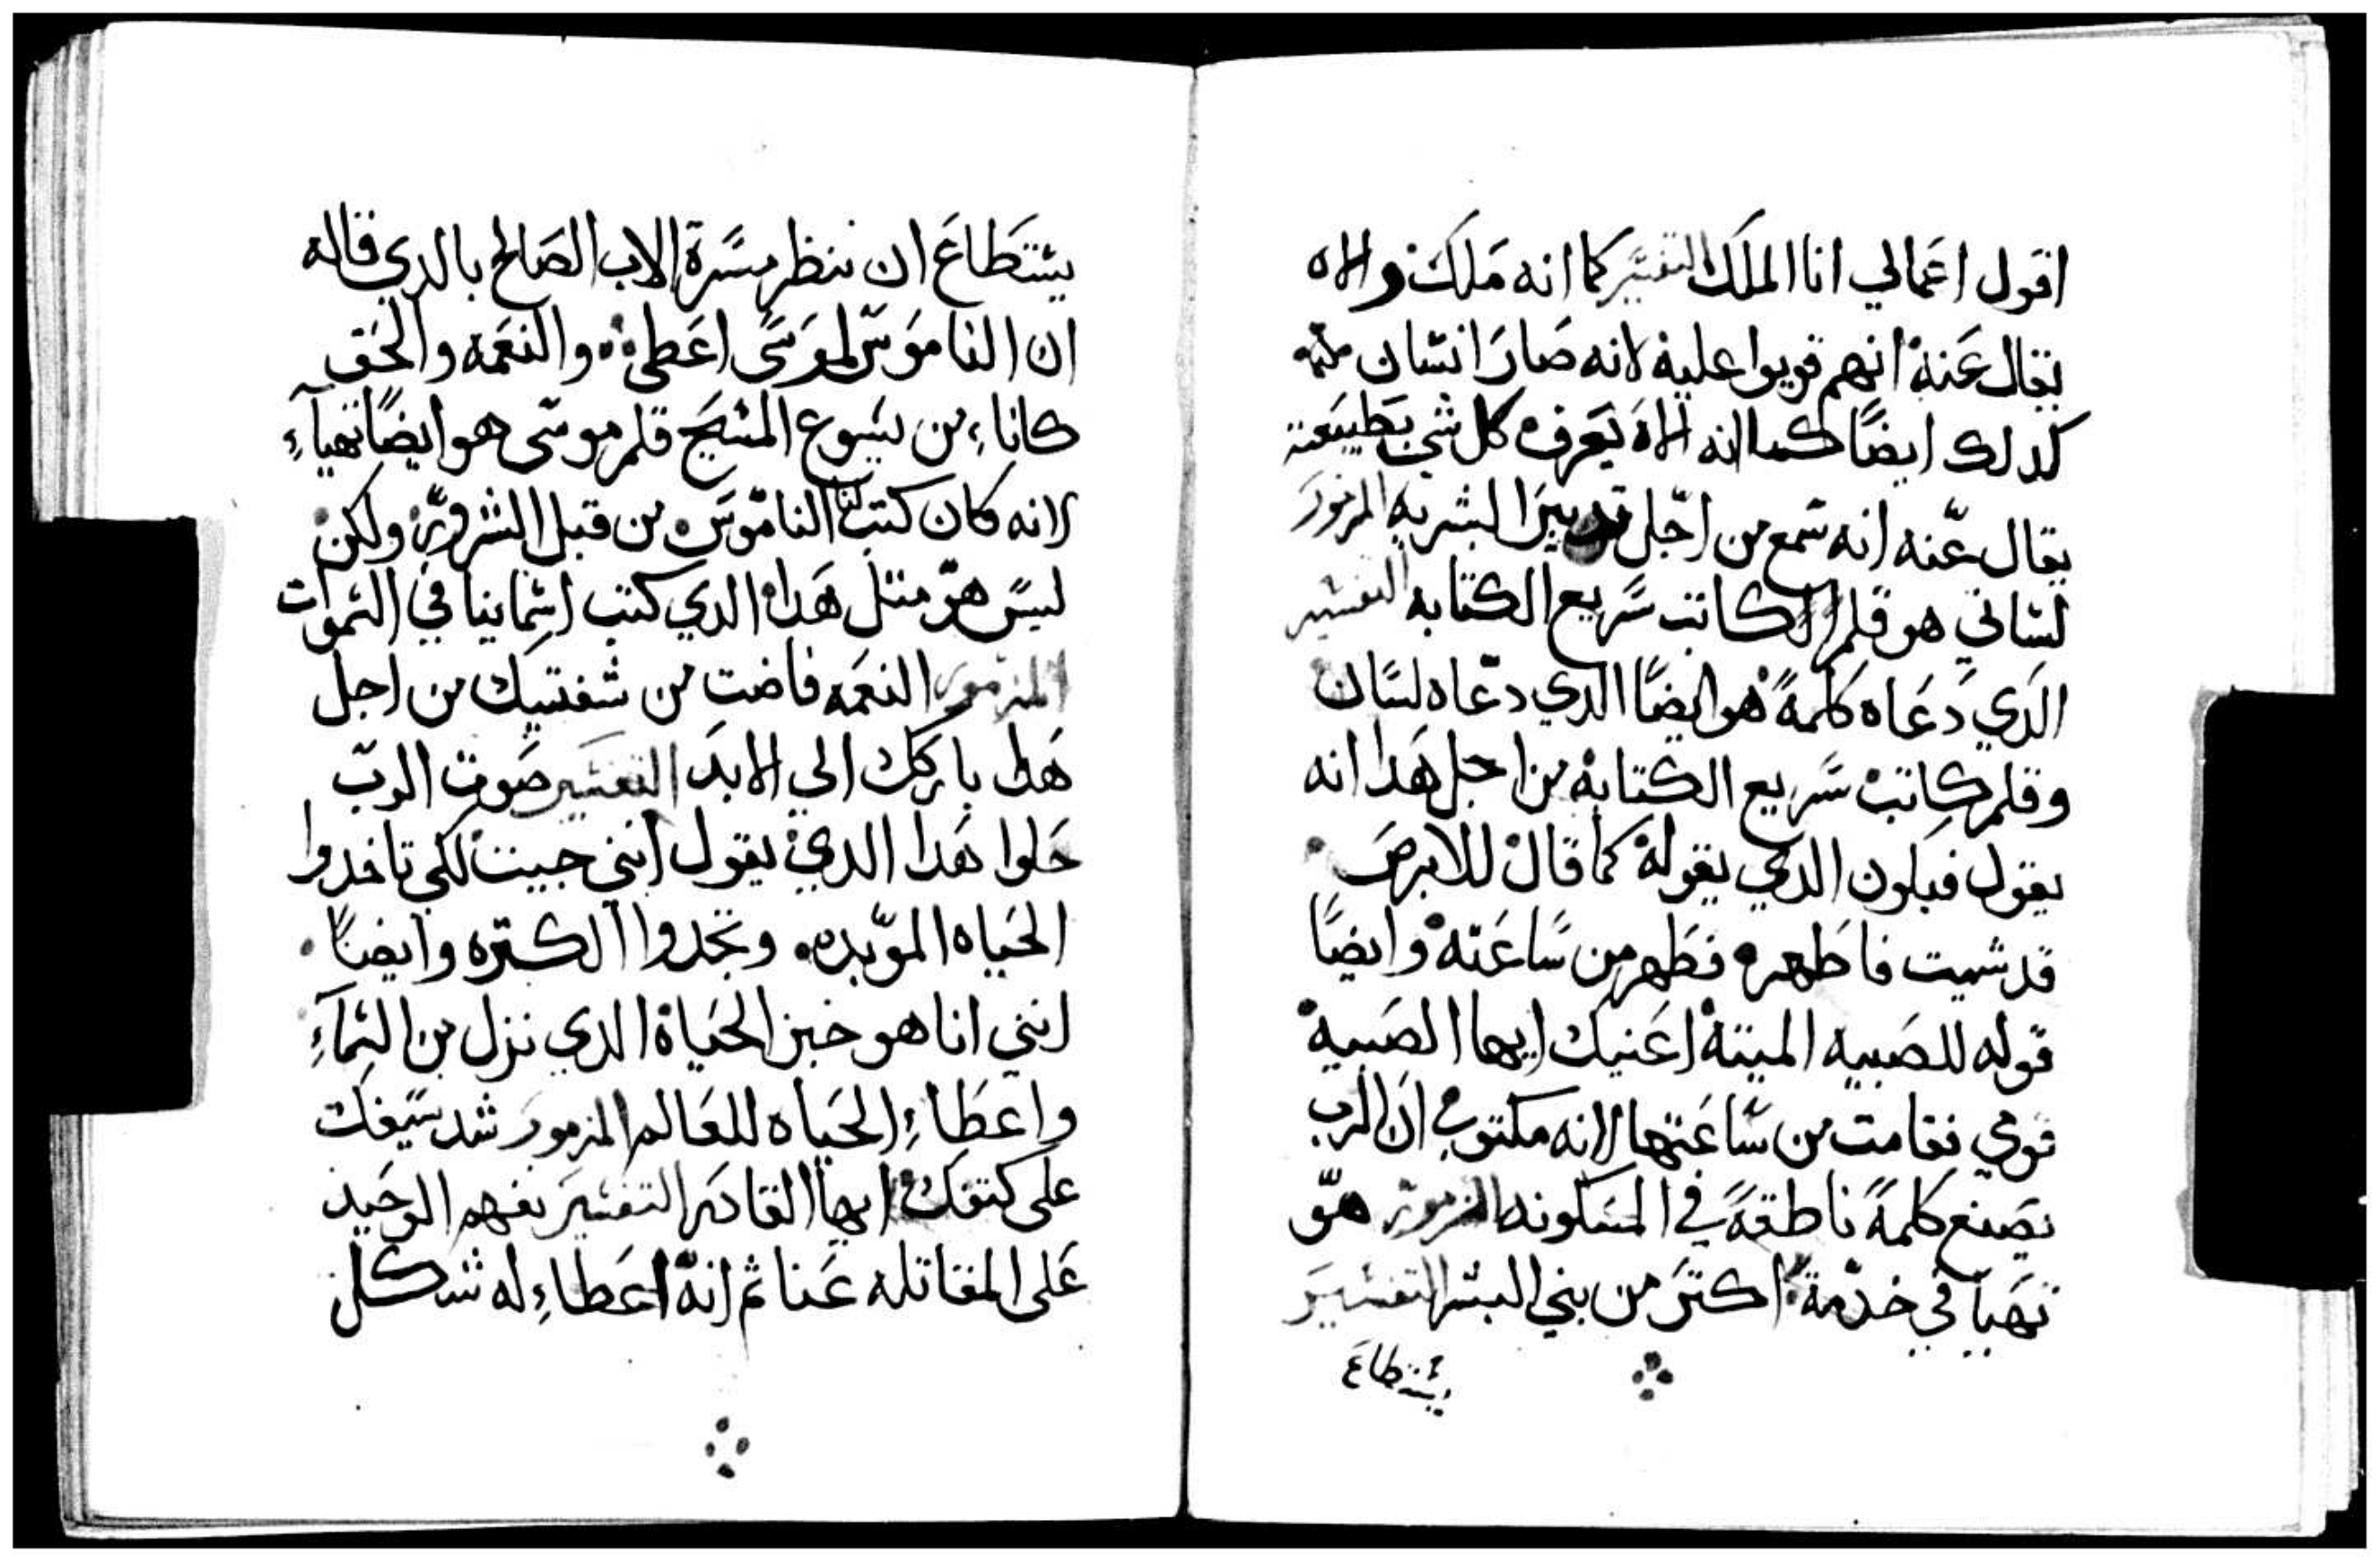 اقول اعمالي انا الملك التفسير كما انه ملك والاه
يقال عنه انهم قويوا عليه لانه صار انسان
كدلك ايضًا كما انه الاه يعرف كل شي بطبيعته
يقال عنه انه سمع من اجل تدبير البشريه المزمور
لساني هو قلم الكاتب سريع الكتابه التفسير
الدي دعاه كلمةً هو ايضًا الدي دعاه لسان
وقلم كاتب سريع الكتابه من اجل هدا انه
يقول فيكون الدي يقوله كما قال للابرص
قد شيت فاطهره فطهر من ساعته وايضًا
قوله للصبيه الميته اعنيك ايها الصبية
قومي فقامت من ساعتها لانه مكتوب ان الرب
يصنع كلمةً ناطقةً في المسكونه المزمور هو
تهيا في خدمة اكتر من بني البشر التفسير
يستطاع
يستطاع ان ننظر مسرة الاب الصالح بالدي قاله
ان الناموس لموسى اعطى والنعمه والحق
كاناء من يسوع المسيح قلم موسى هو ايضًا تهياء
لانه كان كتب لنا الناموس من قبل الشرور ولكن
ليس هو متل هدا الدي كتب اسماينا في السموات
المزمور النعمه فاضت من شفتيك من اجل
هدا باركك الي الابد التفسير صوت الرب
حلوا هدا الدي يقول انني جيت لكي تاخدوا
الحياه الموبده وتجدوا الكتره وايضًا
انني انا هو خبز الحياة الدي نزل من السماء
واعطاء الحياه للعالم المزمور شد سيفك
على كتفك ايها القادر التفسير يفهم الوحيد
على المقاتله عنا ثم انه اعطاء له شكل